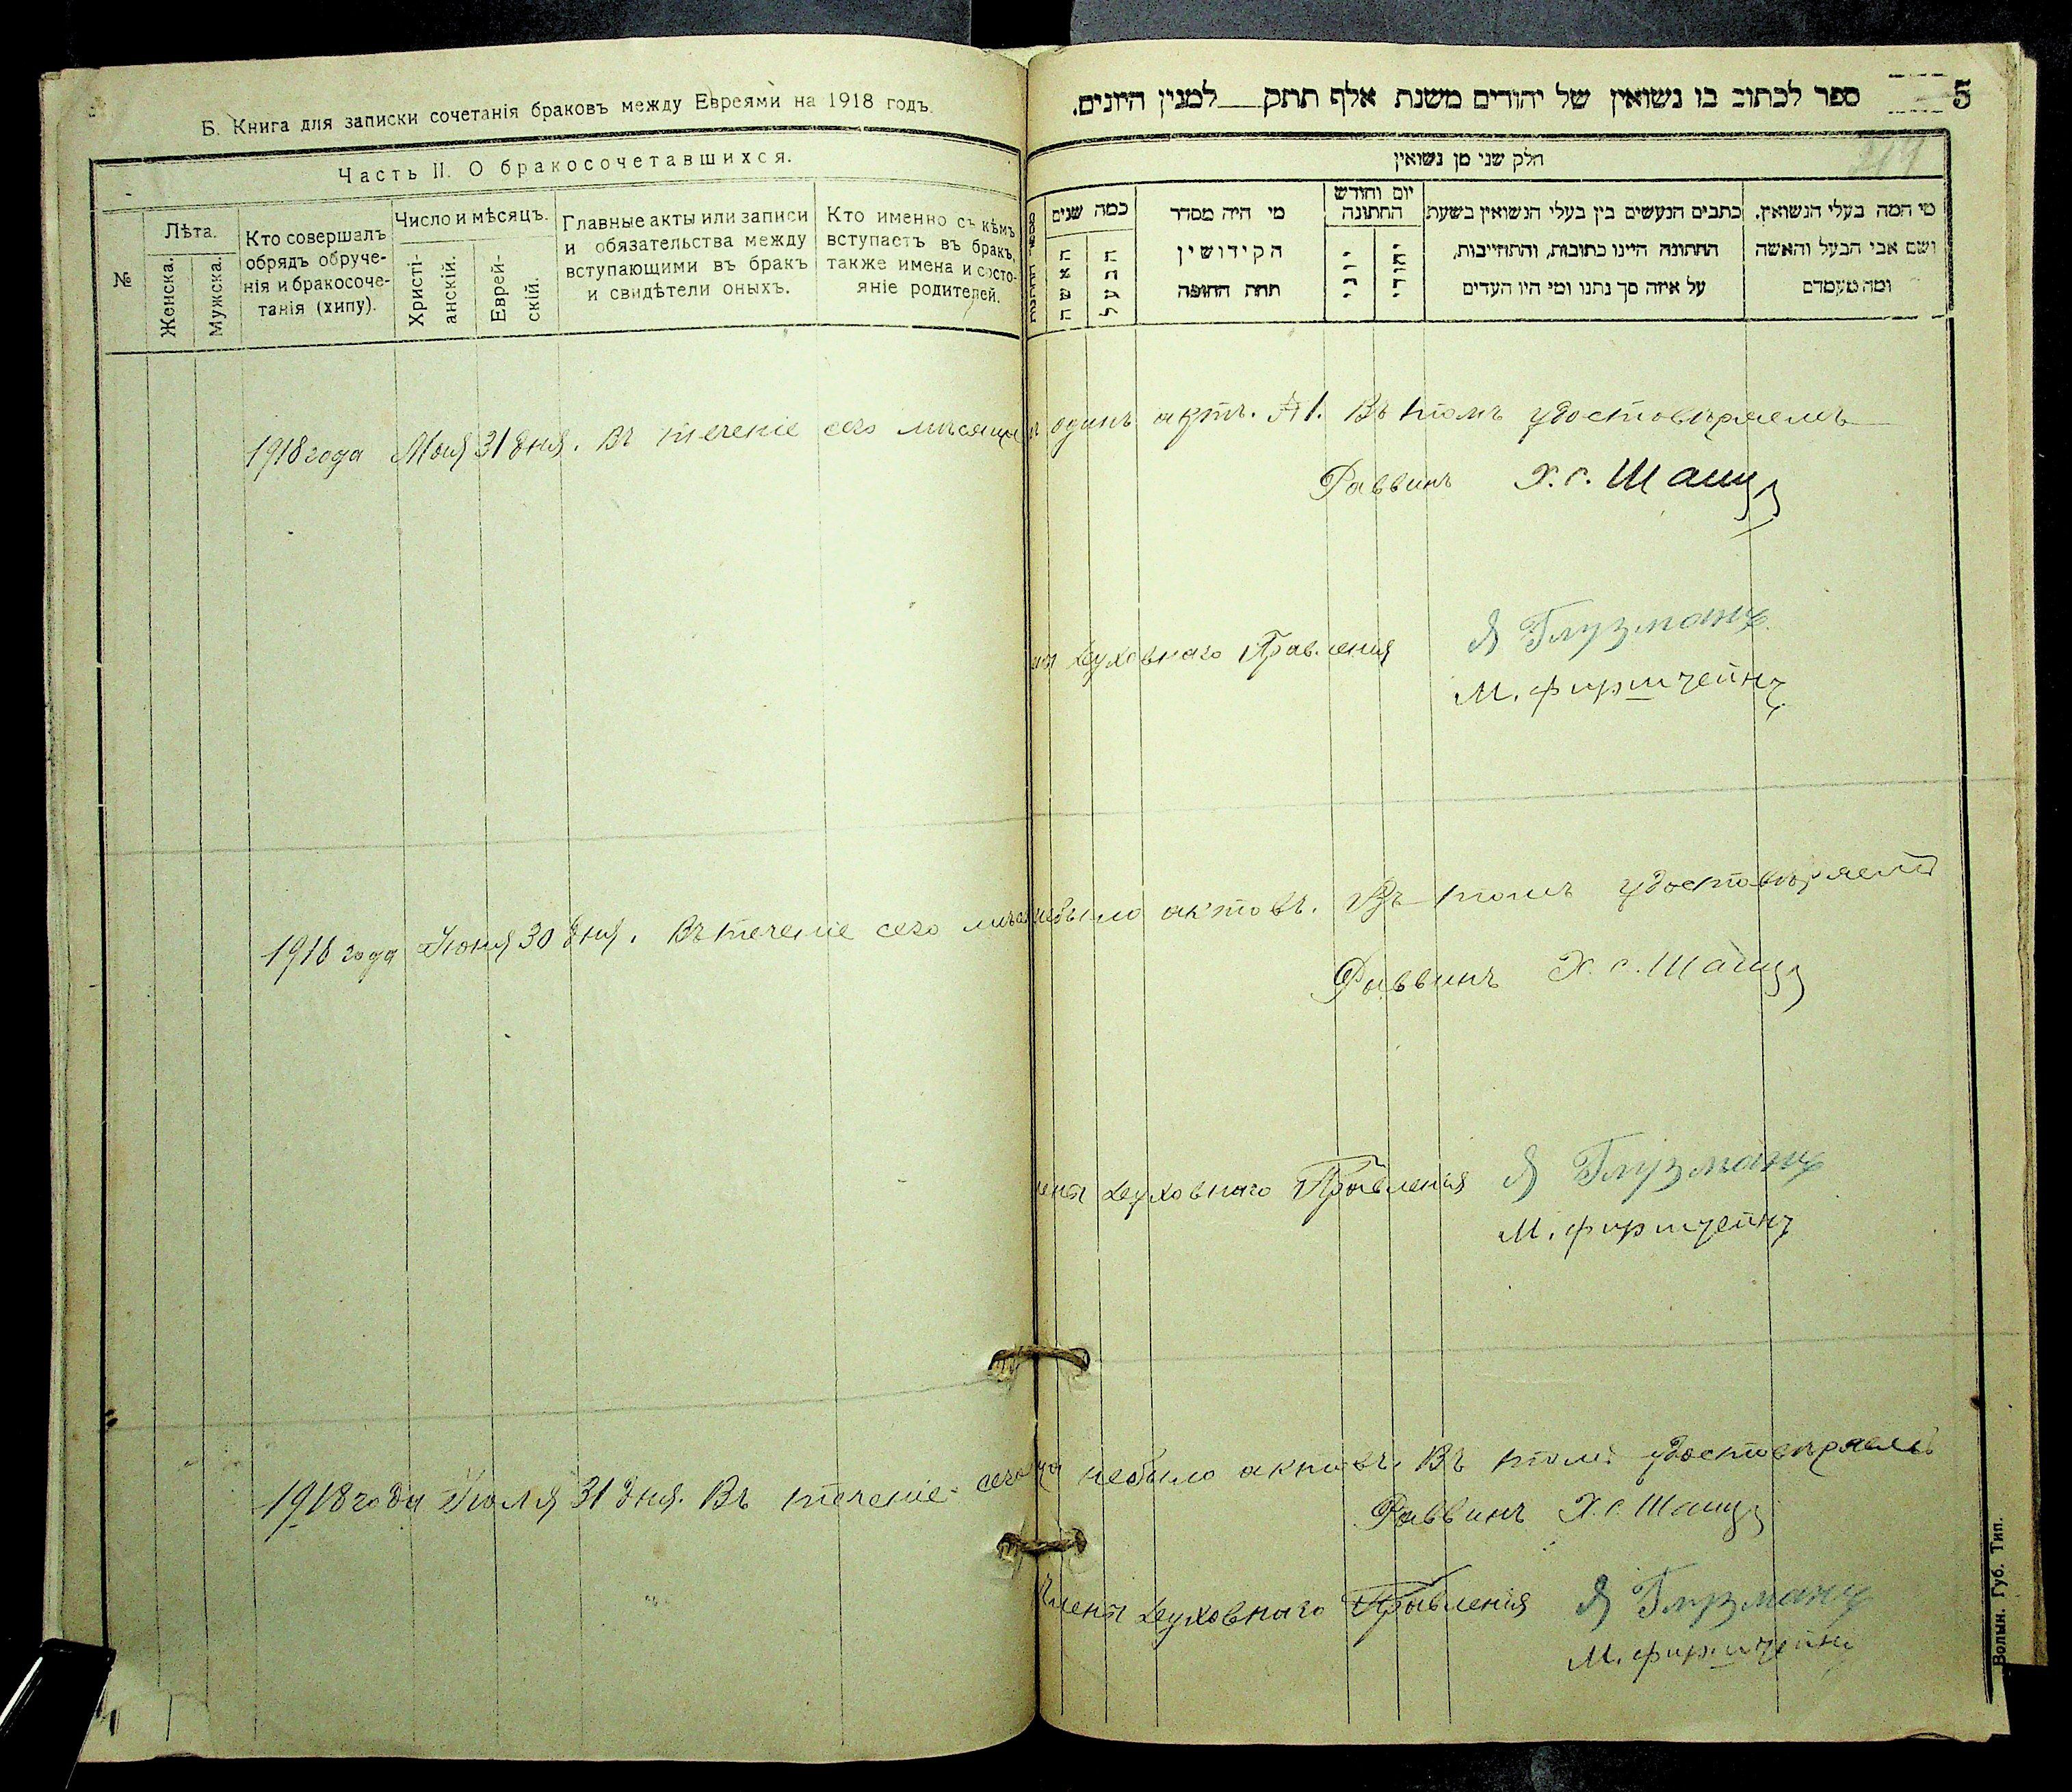 Б. Книга для записки сочетанія браковъ между Евреями на 1918 годъ.
Часть II. О бракосочетавшихся.
№
Лѣта.
Женска.
Мужска.
Кто совершалъ
обрядъ обруче-
нія и бракосоче-
танія (хипу).
Число и мѣсяцъ.
Христі-
анскій.
Еврей-
скій.
Главные акты или записи
и обязательства между
вступающими въ бракъ
и свидѣтели оныхъ.
Кто именно съ кѣмъ
вступаетъ въ бракъ,
также имена и состо-
яніе родителей.
5
ספר לכתוב בו נשואין של יהודים משנת אלף תתק למנין היונים.
חלק שני מן נשואין
כמה שנים
האשה
הבעל
מי היה מסדר
הקידושין
תחת החופה
יום וחודש
החתונה
יוני
יהודי
כתבים הנעשים בין בעלי הנשואין בשעת
החתונה היינו כתובות, והתחייבות,
על איזה סך נתנו ומי היו העדים
מי המה בעלי הנשואין.
ושם אבי הבעל והאשה
ומה מעמדם
1918 года Мая 31 дня. Въ теченіе сего мѣсяца одинъ актъ. №1. Въ томъ удостовѣряемъ
Раввинъ Х. С.
Духовнаго Правленія Я Глузманъ
М. Фирштейнъ
1918 года Іюня 30 дня. Въ теченіе сего небыло актовъ. Въ томъ удостовѣряемъ
Раввинъ Х. С.
Духовнаго Правленія Я Глузманъ
М. Фирштейнъ
1918 года Іюля 31 дня. Въ теченіе сего небыло актовъ. Въ томъ удостовѣряемъ
Раввинъ Х. С.
Члены Духовнаго Правленія Я Глузманъ
М. Фирштейнъ
Волын. Губ. Тип.